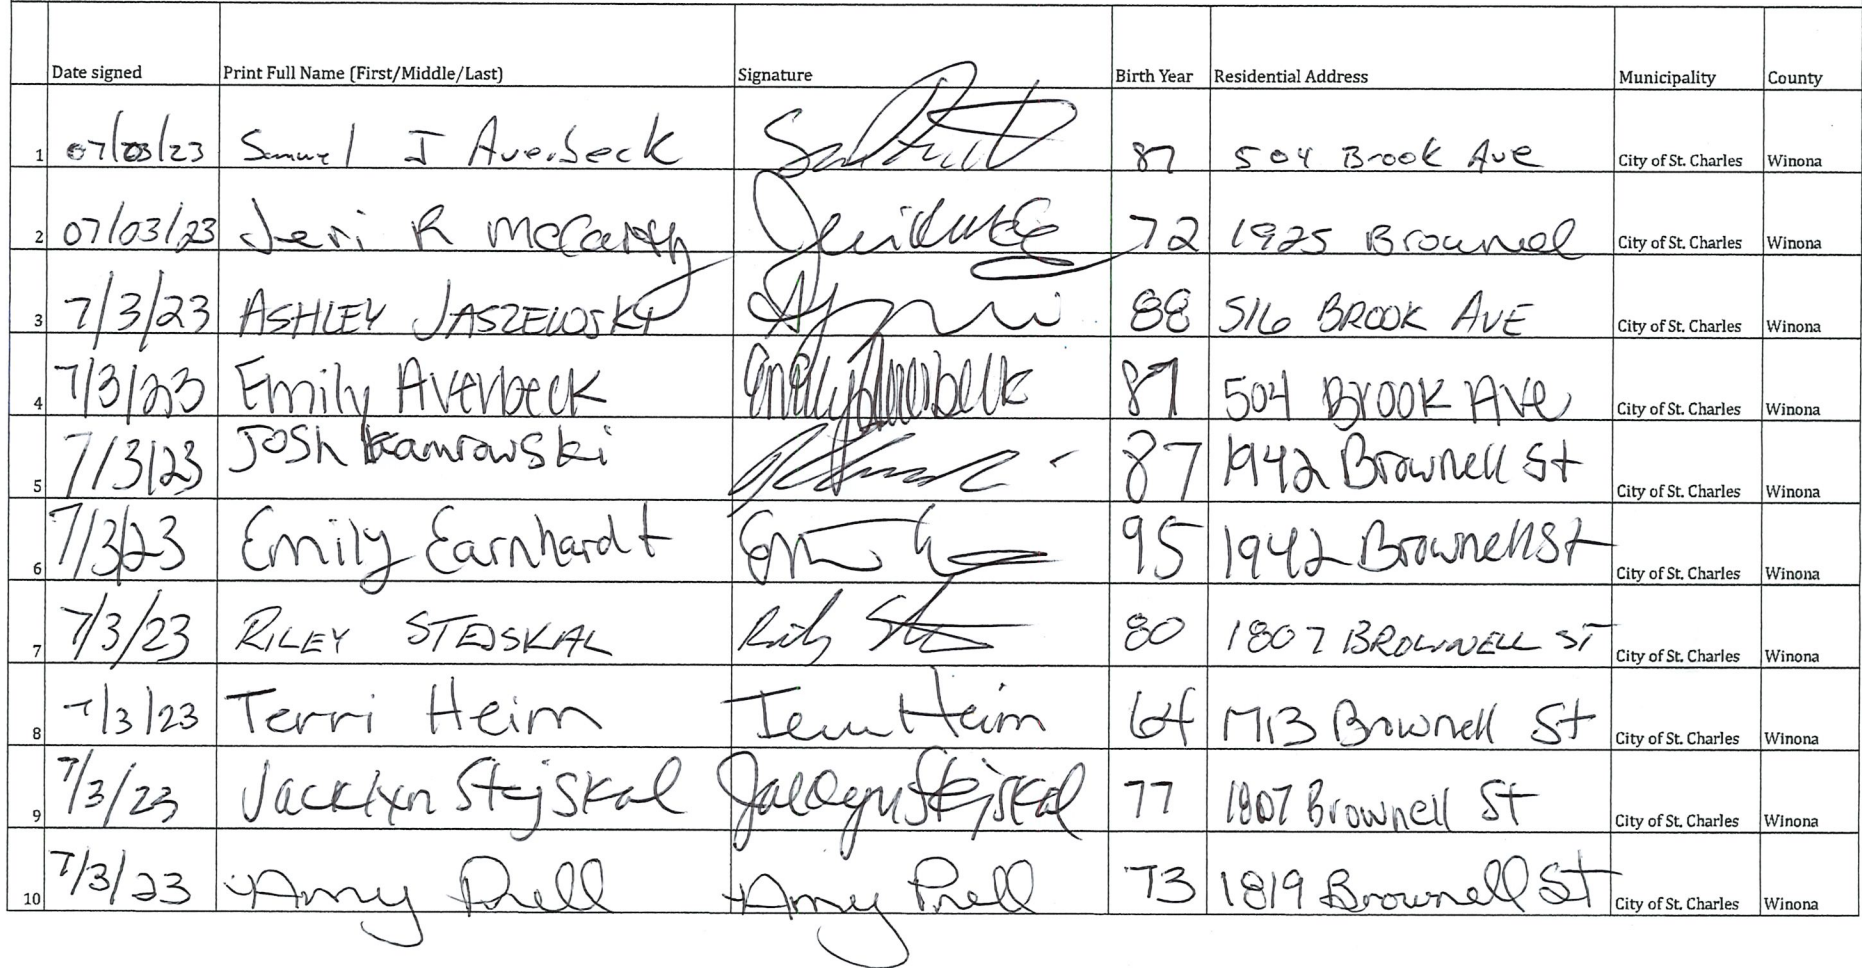 Date signed Print Full Name (First/Middle/Last) Signature Birth Year Residential Address Municipality County
1 07/03/23 Samuel J Averbeck 87 504 Brook Ave City of St. Charles Winona
2 07/03/23 Jeri R McCarthy 72 1925 Brownel City of St. Charles Winona
3 7/3/23 ASHLEY JASZEWSKY 88 516 BROOK AVE City of St. Charles Winona
4 7/3/23 Emily Averbeck Emily Averbeck 87 504 Brook Ave City of St. Charles Winona
5 7/3/23 Josh Kamrowski 87 1942 Brownell St City of St. Charles Winona
6 7/3/23 Emily Earnhardt 95 1942 Brownell St City of St. Charles Winona
7 7/3/23 RILEY STEJSKAL 80 1807 BROWNELL ST City of St. Charles Winona
8 7/3/23 Terri Heim Terri Heim 64 1713 Brownell St City of St. Charles Winona
9 7/3/23 Jacklyn Stejskal Jacklyn Stejskal 77 1807 Brownell St City of St. Charles Winona
10 7/3/23 Amy Prell Amy Prell 73 1819 Brownell St City of St. Charles Winona